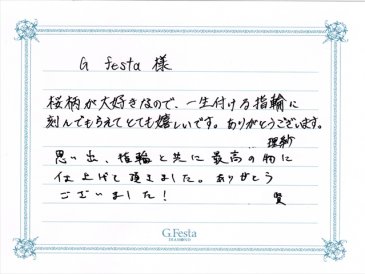 G festa 様
桜柄が大好きなので、一生付ける指輪に
刻んでもらえてとても嬉しいです。ありがとうございます。
理紗
思い出、指輪と共に最高の物に
仕上げて頂きました。ありがとう
ございました！
賢
G.Festa
DIAMOND